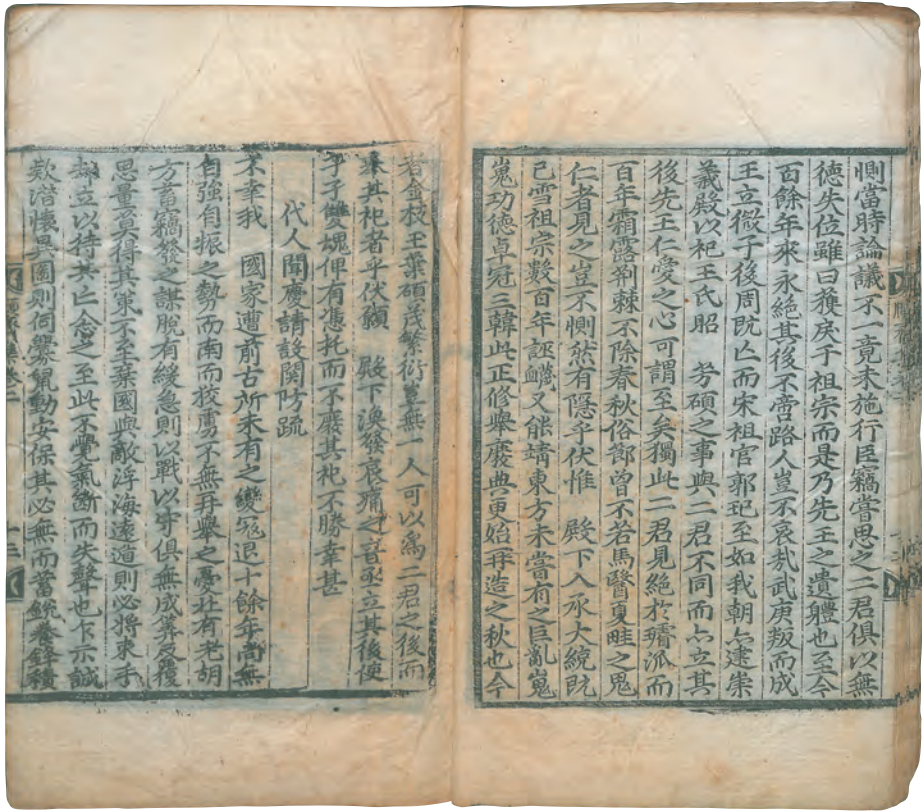 惻當時論議不一竟未施行臣竊嘗思之二君俱以無
德失位雖曰獲戾于祖宗而是乃先王之遺軆也至今
百餘年來永絕其後不啻路人豈不哀㢤武庚叛而成
王立微子後周旣亾而宋祖官郭玘至如我朝亦建崇
義殿以祀王氏昭 勞碩之事與二君不同而亦立其
後先王仁愛之心可謂至矣獨此二君見絕於璿派而
百年霜露荆棘不除春秋俗節曾不若馬醫夏畦之鬼
仁者見之豈不惻然有隱乎伏惟 殿下入承大統旣
已雪祖宗數百年誣衊又能靖東方未嘗有之巨亂嵬
嵬功德卓冠三韓此正修擧廢典更始再造之秋也今
者金枝王葉碩茂繁衍豈無一人可以爲二君之後而
奉其祀者乎伏願 殿下渙發哀痛之音亟立其後使
乎子雙魂俾有憑托而不廢其祀不勝幸甚
代人聞慶請設關防䟽
不幸我 國家遭前古所未有之變寇退十餘年尙無
自強自振之勢而南而校虜不無再擧之憂北有老胡
方蓄竊發之謀脫有緩急則以戰以守俱無成筭反覆
思量莫得其策不去棄國與敵浮海遠遁則必將束手
刼立以待其亾念之至此不覺氣斷而失聲也乍示誠
欵潜懷異圖則伺釁鼠動安保其必無而蓄銳養鋒積